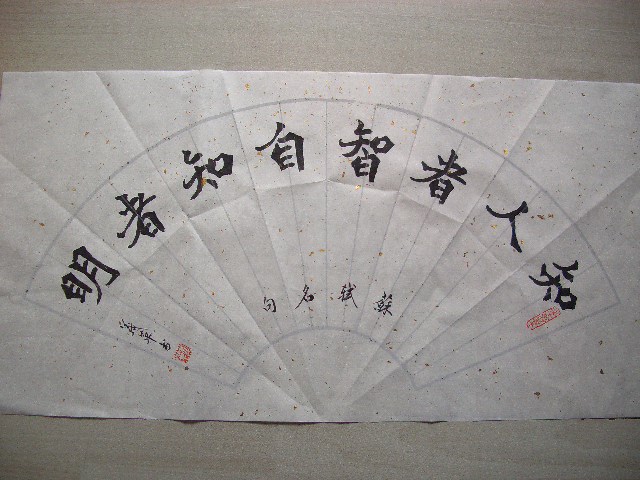 知人者智自知者明
蘇軾名句